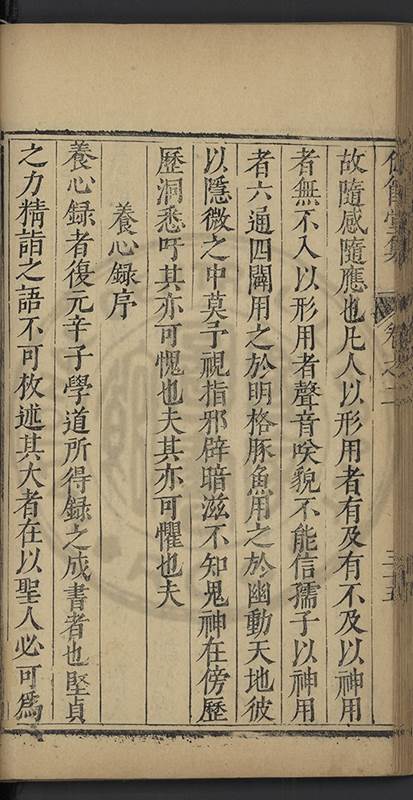 故隨感隨應也凡人以形用者有及有不及以神用
者無不入以形用者聲音唉貌不能信孺子以神用
者六通四闢用之於明格豚魚用之於幽動天地彼
以隱微之中莫予視指邪辟暗滋不知鬼神在傍歷
歷洞悉吁其亦可愧也夫其亦可懼也夫
養心録序
養心録者復元辛子學道所得録之成書者也堅貞
之力精詣之語不可枚述其大者在以聖人必可爲